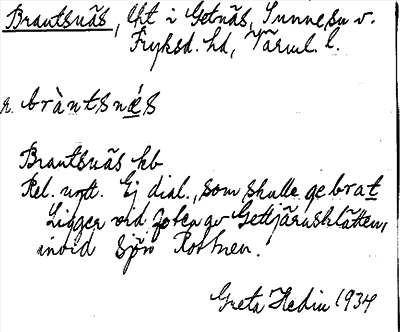 Brantsnäs, lht i Getnäs, Sunne sn v.
Fryksd. hd, Värml. l.
a. bràntsnǽs
Brantsnäs hb
Rel. nytt. Ej dial., som skulle ge brat
Ligger vid foten av Gettjärnsklätten,
invid sjön Rottnen.
Greta Hedin 1934